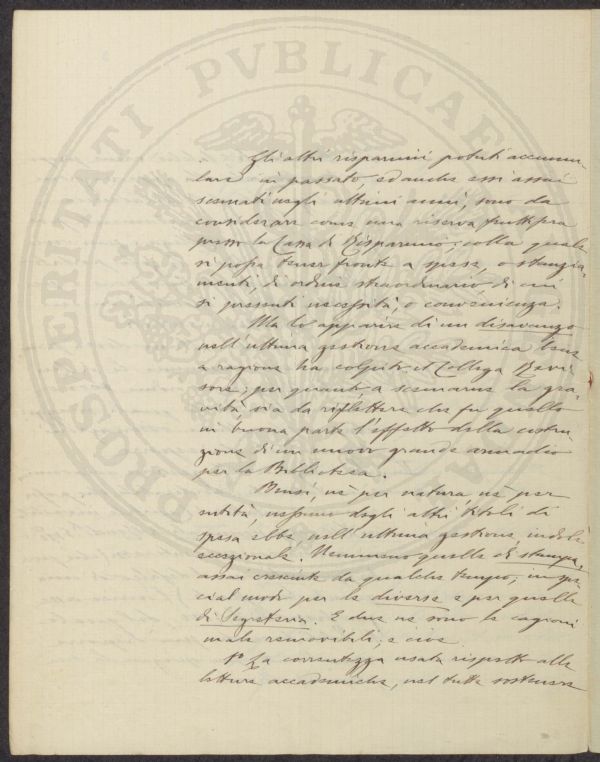 PROSPERITATI PVBLICAE
Gli altri risparmii potuti accumu-
lare in passato, ed anche essi assai
scemati negli ultimi anni, sono da
considerare come una riserva fruttifera
presso la Cassa di Risparmio; colla quale
si possa tener fronte a spese, o stanzia-
menti, di ordine straordinario, di cui
si presenti necessità, o convenienza.
Ma lo apparire di un disavanzo
nell'ultima gestione accademica bene
a ragione ha colpito il Collega Revi-
sore; per quanto a scemarne la gra-
vità sia da riflettere che fu quello
in buona parte l'effetto della costru-
zione di un nuovo grande armadio
per la Biblioteca.
Bensì, nè per natura, nè per
entità, nessuno degli altri titoli di
spesa ebbe, nell'ultima gestione, indole
eccezionale. Nemmeno quelle di stampa,
assai crescente da qualche tempo, in spe-
cial modo per le diverse e per quelle
di Segreteria. E due ne sono le cagioni
male removibili; e cioè
1º La correntezza usata rispetto alle
letture accademiche, nel tutte sostenere